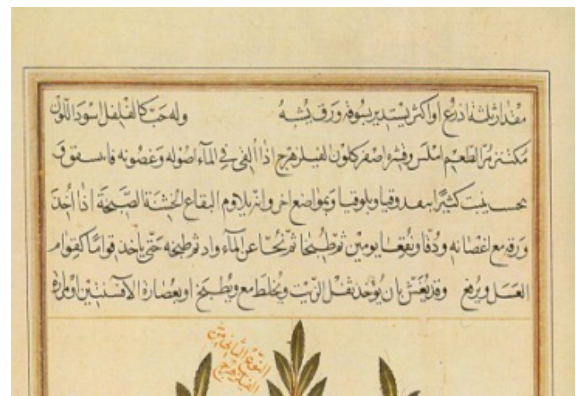 مقدار ثلثة اذرع او اكثر يستدير بسوقه ورق يشبه وله حب كالفلفل اسود اللون
مكتنز مر الطعم املس وقشره اصفر كلون الفيلزهرج اذا القى فى الماء اصوله وغصونه
ينبت كثيرا وبلوقيا وبمواضع اخر وانه يلاوم البقاع الخشنة اذا اخذ
ورقه مع اغصانه ودقا ونقعا يومين ثم طبخا ثم نحا عن الماء واد ثم طبخه حتى ياخذ قواما كقوام
العسل ويرفع وقد يغش بان يؤخذ ثفل الزيت ويخلط مع ويطبخ او بعصارة الافسنتين او مرارة
النوع الثانى من
الفيلزهرج